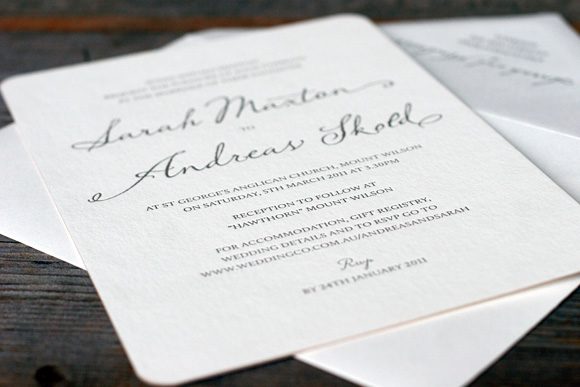 Sarah Maxton
TO
Andreas Skold
AT ST GEORGE'S ANGLICAN CHURCH, MOUNT WILSON
ON SATURDAY, 5TH MARCH 2011 AT 3.30PM
RECEPTION TO FOLLOW AT
"HAWTHORN" MOUNT WILSON
FOR ACCOMMODATION, GIFT REGISTRY,
WEDDING DETAILS AND TO RSVP GO TO
WWW.WEDDINGCO.COM.AU/ANDREASANDSARAH
Rsvp
BY 24TH JANUARY 2011